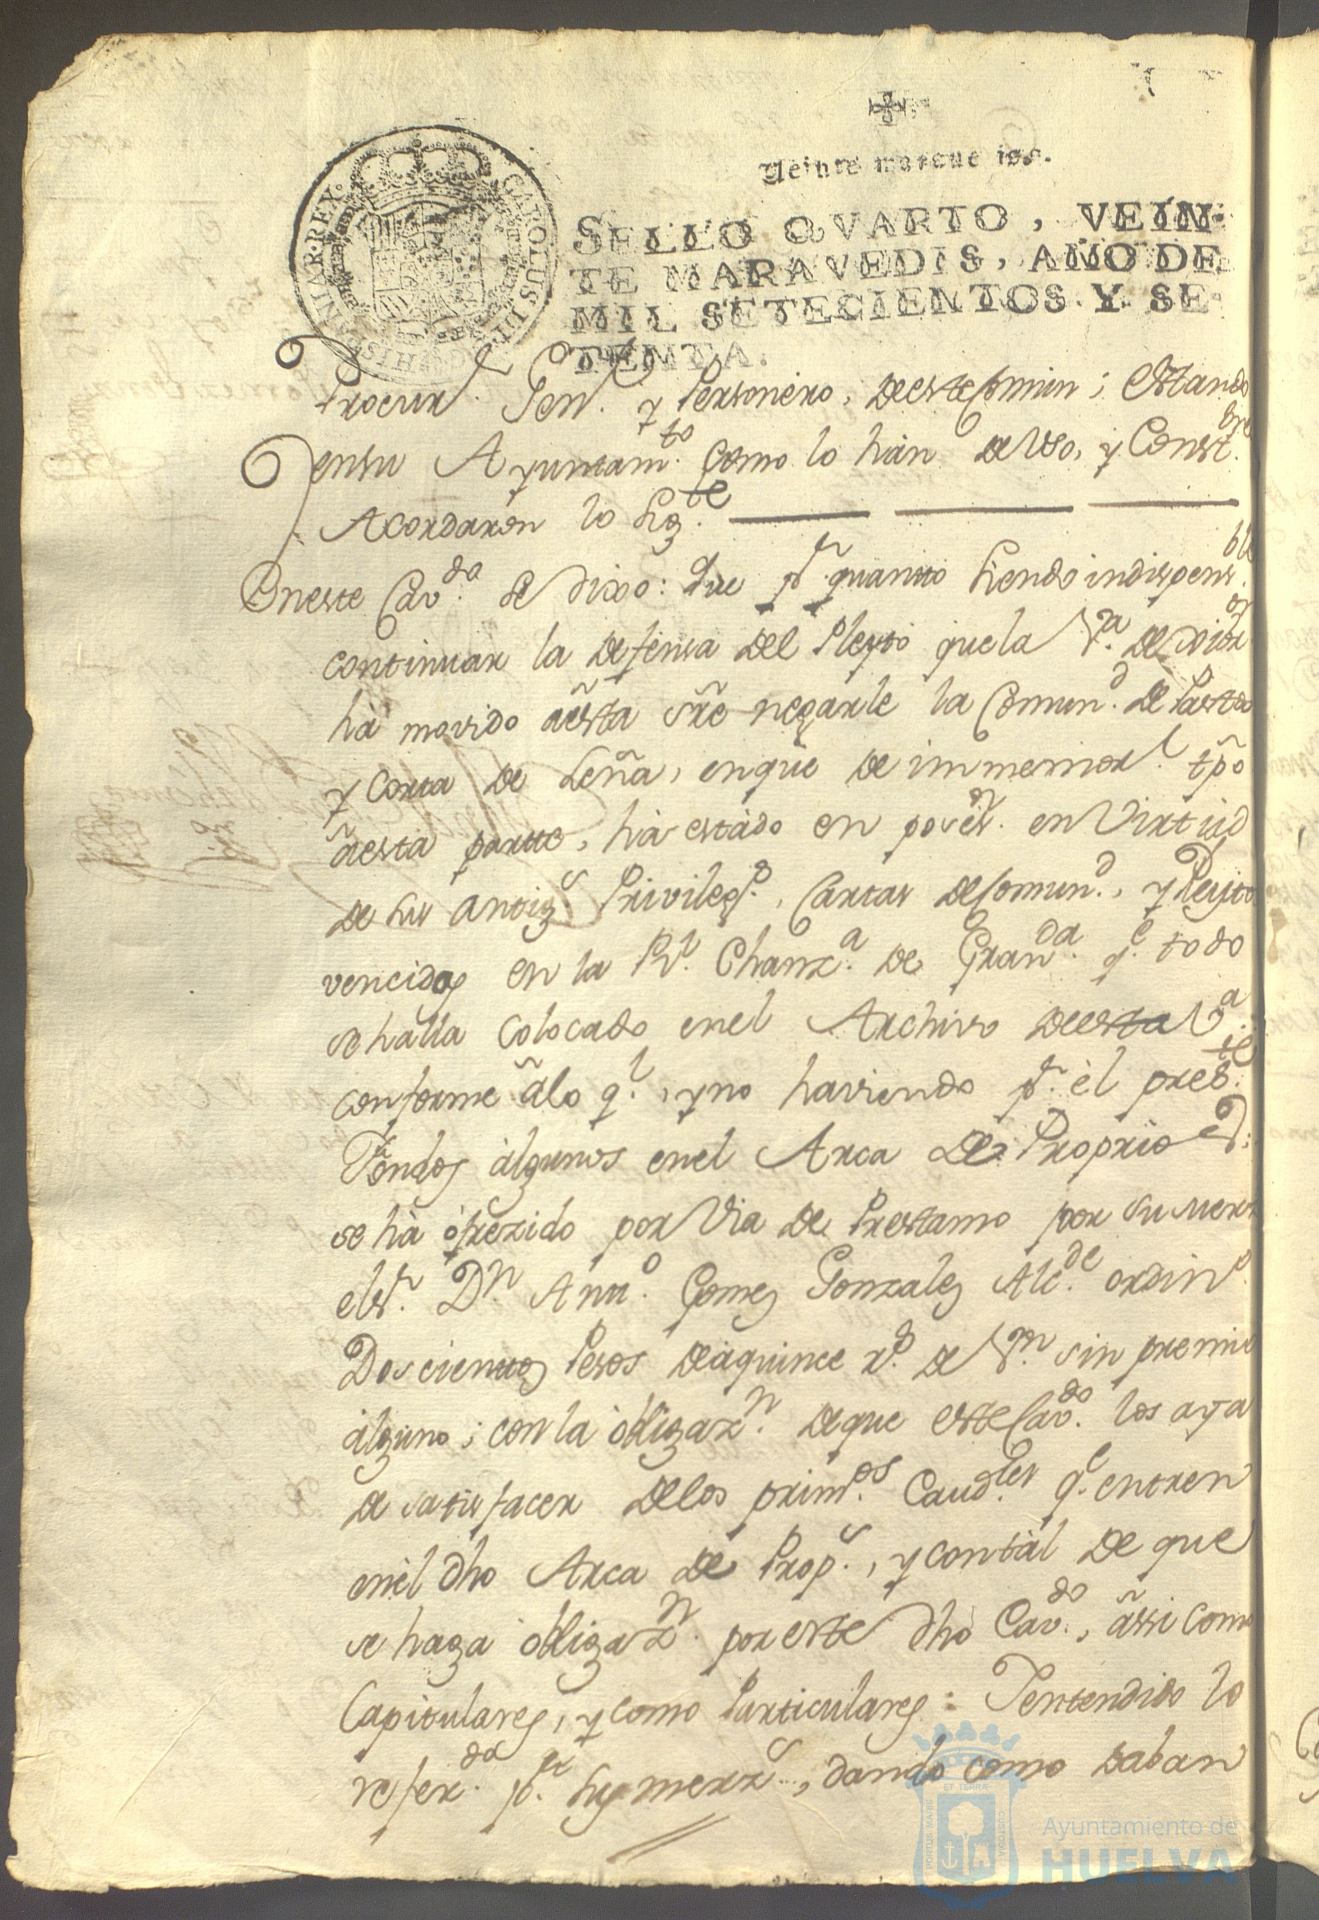 Veinte maraue is.
SELLO QVARTO, VEIN-
TE MARAVEDIS, AÑO DE
MIL SETECIENTOS Y SE-
TENTA.
CAROLUS III D G HISPANIAR REX
Procur.r Gen.l y Personero, deeste Comun; estando
ensu Ayuntam.to como lo hàn de Uso, y Const.bre
Acordaron lo sig.te
Eneste Cav.do se dixo: Que p.r quanto siendo indispens.ble
continuar la defensa del Pleyto quela V.a de
hà movido aẽsta sr̃e negarle la Comun.d de Pastos
y Corta de Leña, enque de immemor.l tp̃o
ãesta partte, hà estàdo en poses.n en Virtud
de sus Antig.s Privileg.s, Cartas deComun.d, y Pleyto
vencidos en la R.l Chanz.a de Gran.da q.e todo
se halla Colocado enel Archivo deesta V.a
conforme ãlo q.l, y no haviendo p.r èl pres.te
Fondos àlgunos enel Arca de Proprios
se hà òfrezido por Via de Prestamo por su merz.d
el s.r D.n Antt.o Gomez Gonzalez Alc.de ordin.o
Doscienttos Pesos deàquince r.s de V.n sin premio
àlguno; con la òbligaz.n deque este Cav.do los aya
de satisfacer delos prim.os Caud.les q.e entren
enèl dho Arca de Prop.s, y contàl de que
se haga òbligaz.n por este dho Cav.do, ãssi como
Capitulares, y como Particulares: Y entendido lo
refer.do p.r sus merz.s, dando como daban
Ayuntamiento de
HUELVA